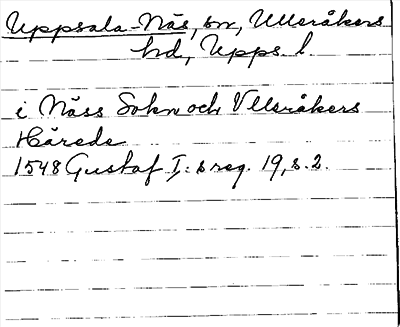 Uppsala-Näs, sn, Ulleråkers
hd, Upps. l
i Näss Sokn och Vlleråkers
Härede
1548 Gustaf I:s reg. 19, s. 2.